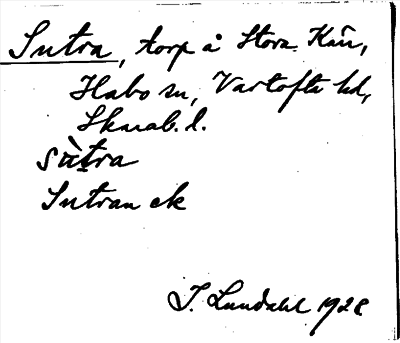 Sutra, torp å Stora Kärr,
Habo sn, Vartofta hd,
Skarab. l.
sùtra
Sutran ck
J. Lundahl 1928